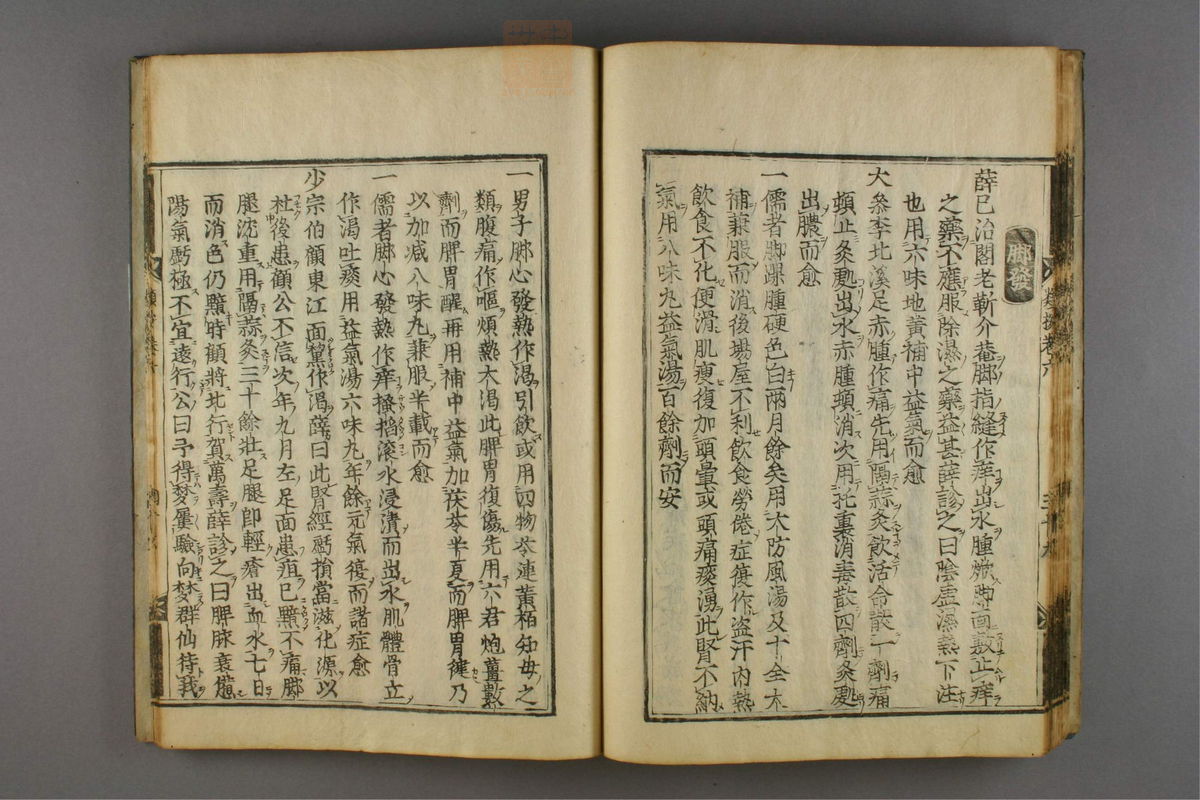 脚發
薛已治閣老靳介菴脚指縫作痒出水腫焮脚面敷止痒
之藥不應服除濕之藥益甚薛診之曰陰虛濕熱下注
也用六味地黄補中益氣而愈
大叅李北溪足赤腫作痛先用隔蒜灸飲活命散一劑痛
頓止灸䖏出水赤腫頓消次用托裏消毒散四劑灸䖏
出膿而愈
一儒者脚踝腫硬色白兩月餘矣用大防風湯及十全大
補兼服而消後塲屋不利飲食勞倦症復作盗汗内熱
飲食不化便滑肌瘦復加頭暈或頭痛痰湧此腎不納
氣用八味丸益氣湯百餘劑而安
一男子脚心發熱作渴引飲或用四物苓連黄栢知母之
類腹痛作嘔煩熱大渴此脾胃復傷先用六君炮薑數
劑而脾胃醒再用補中益氣加茯苓半夏而脾胃健乃
以加减八味丸兼服半載而愈
一儒者脚心發熱作痒搔搯滚水浸漬而出水肌體骨立
作渴吐痰用益氣湯六味丸年餘元氣復而諸症愈
少宗伯顧東江面黧作渴薛曰此腎經虧損當滋化源以
杜後患顧公不信次年九月左足面患疽已黯不痛脚
腿沈重用隔蒜灸三十餘壯足腿即輕瘡出血水七日
而消色仍黯時顧將北行賀萬壽薛診之曰脾脉衰憊
陽氣虧極不宜遠行公曰予得梦屢驗向梦群仙待我